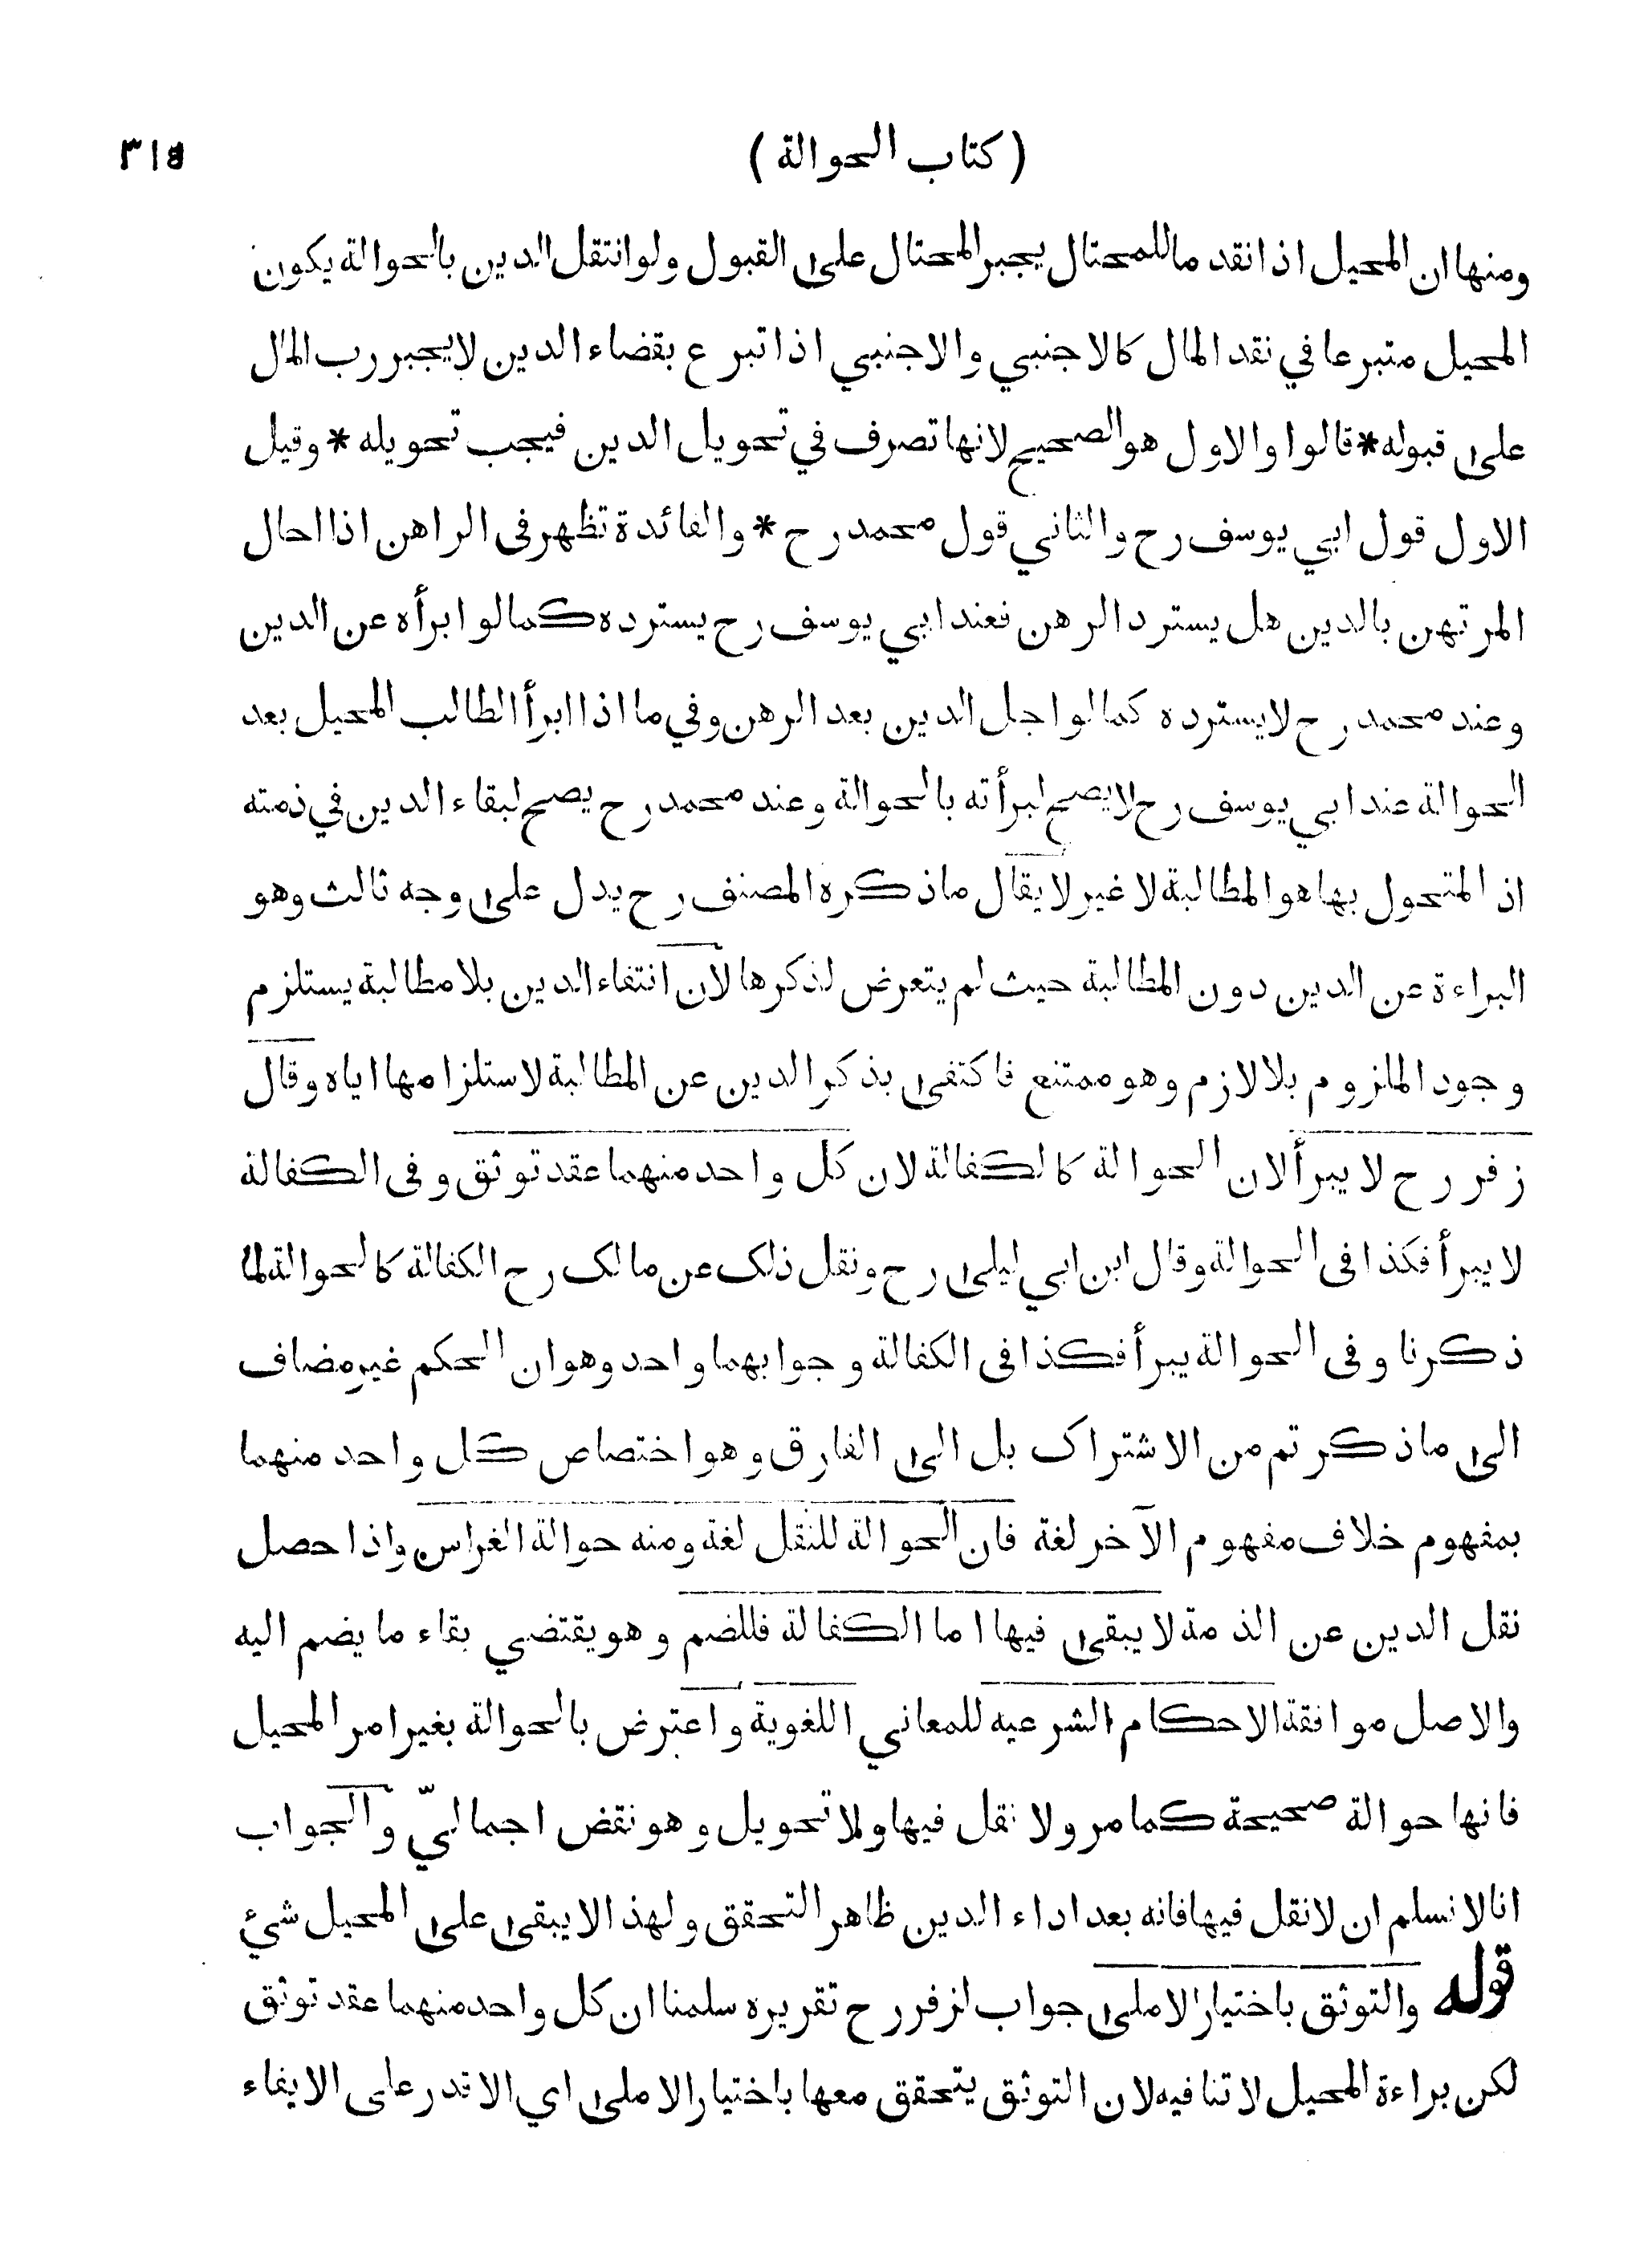 ( كتاب الحوالة ) ٣١٥
ومنها ان المحيل اذا نقد ما للمحتال يجبر المحتال على القبول ولو انتقل الدين بالحوالة يكون
المحيل متبرعا في نقد المال كالاجنبي والاجنبي اذا تبرع بقضاء الدين لا يجبر رب المال
على قبوله * قالوا والاول هو الصحيح لانها تصرف في تحويل الدين فيجب تحويله * وقيل
الاول قول ابي يوسف رح والثاني قول محمد رح * والفائدة تظهر فى الراهن اذا احال
المرتهن بالدين هل يسترد الرهن فعند ابي يوسف رح يسترده كما لو ابرأه عن الدين
وعند محمد رح لا يسترده كما لو اجل الدين بعد الرهن وفي ما اذا ابرأ الطالب المحيل بعد
الحوالة عند ابي يوسف رح لا يصح لبرأته بالحوالة وعند محمد رح يصح لبقاء الدين في ذمته
اذ المتحول بها هو المطالبة لا غير لا يقال ما ذكره المصنف رح يدل على وجه ثالث وهو
البراءة عن الدين دون المطالبة حيث لم يتعرض لذكرها لان انتفاء الدين بلا مطالبة يستلزم
وجود الملزوم بلا لازم وهو ممتنع فاكتفى بذكر الدين عن المطالبة لاستلزامها اياه وقال
زفر رح لا يبرأ لان الحوالة كالكفالة لان كل واحد منهما عقد توثق وفى الكفالة
لا يبرأ فكذا فى الحوالة وقال ابن ابي ليلى رح ونقل ذلک عن مالک رح الكفالة كالحوالة لما
ذكرنا وفى الحوالة يبرأ فكذا فى الكفالة وجوابهما واحد وهو ان الحكم غير مضاف
الى ما ذكرتم من الاشتراک بل الى الفارق وهو اختصاص كل واحد منهما
بمفهوم خلاف مفهوم الآخر لغة فان الحوالة للنقل لغة ومنه حوالة الغراس واذا حصل
نقل الدين عن الذمة لا يبقى فيها اما الكفالة فللضم وهو يقتضي بقاء ما يضم اليه
والاصل موافقة الاحكام الشرعيه للمعاني اللغوية واعترض بالحوالة بغير امر المحيل
فانها حوالة صحيحة كما مر ولا نقل فيها ولا تحويل وهو نقض اجماليّ والجواب
انا لا نسلم ان لا نقل فيها فانه بعد اداء الدين ظاهر التحقق ولهذا لا يبقى على المحيل شئ
قوله والتوثق باختيار الاملى جواب لزفر رح تقريره سلمنا ان كل واحد منهما عقد توثق
لكن براءة المحيل لا تنافيه لان التوثق يتحقق معها باختيار الاملى اي الاقدر على الايفاء